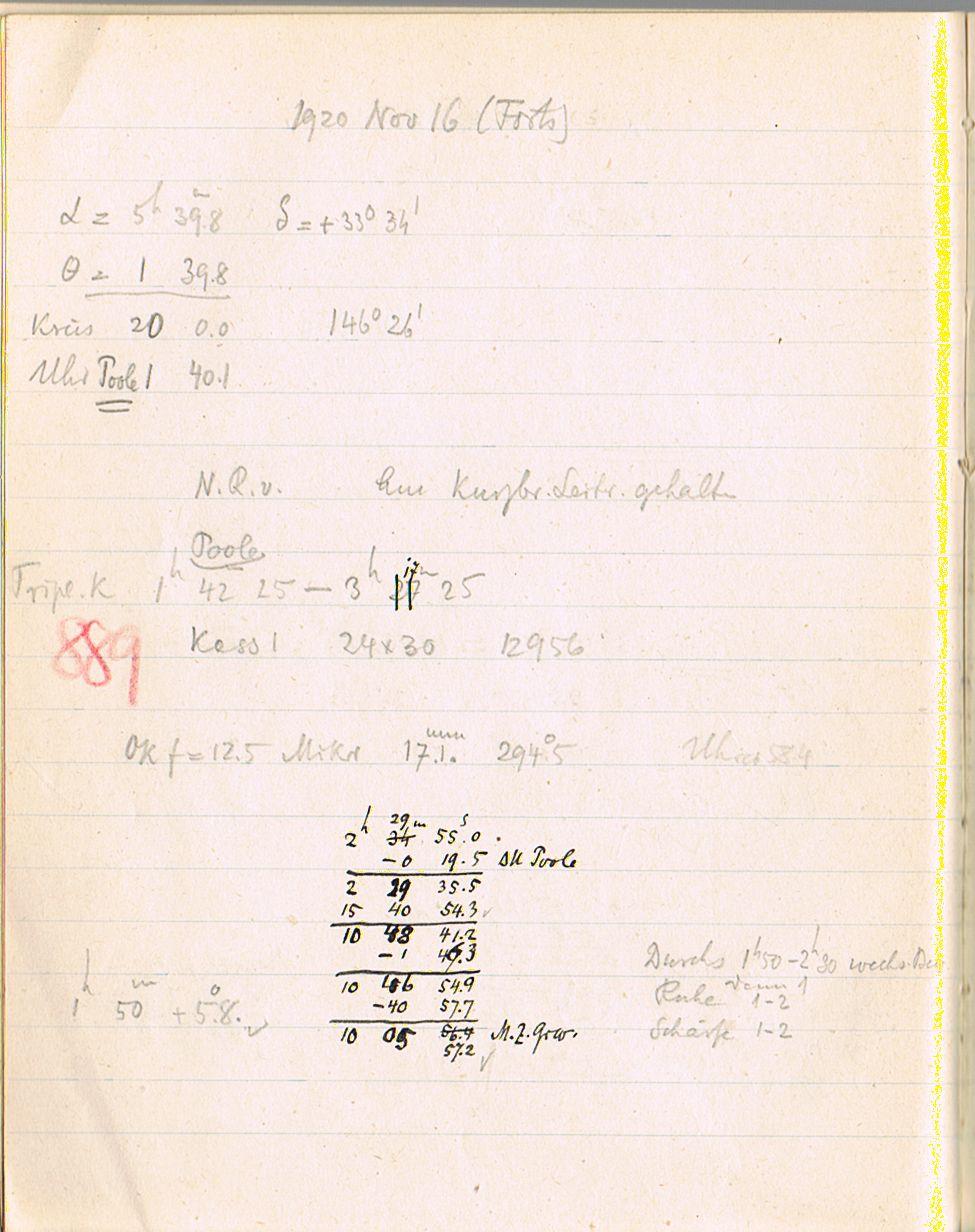 1920 Nov 16 (Forts)
α = 5h 39.8m δ = +33° 34'
θ = 1 39.8
Kreis 20 0.0 146° 26'
Uhr Poole 1 40.1
N.Q.v. Am Kurzbr. Leitr. gehalten
Poole
Tripl. K 1h 42 25 – 3h 17m 25
889 Kass 1 24×30 12956
OK f = 12.5 Mikr 17.1.mm 294°5
2h 29m 55.0s
34
-0 19.5 ΔU Poole
2 29 35.5
15 40 54.3
10 48 41.2
-1 46.3
10 46 54.9
-40 57.7
10 05 56.4 M.Z.Grw.
57.2
1h 50m + 5.8°
Durchs 1h50 – 2h30 wechs.
Ruhe dann 1
1-2
Schärfe 1-2